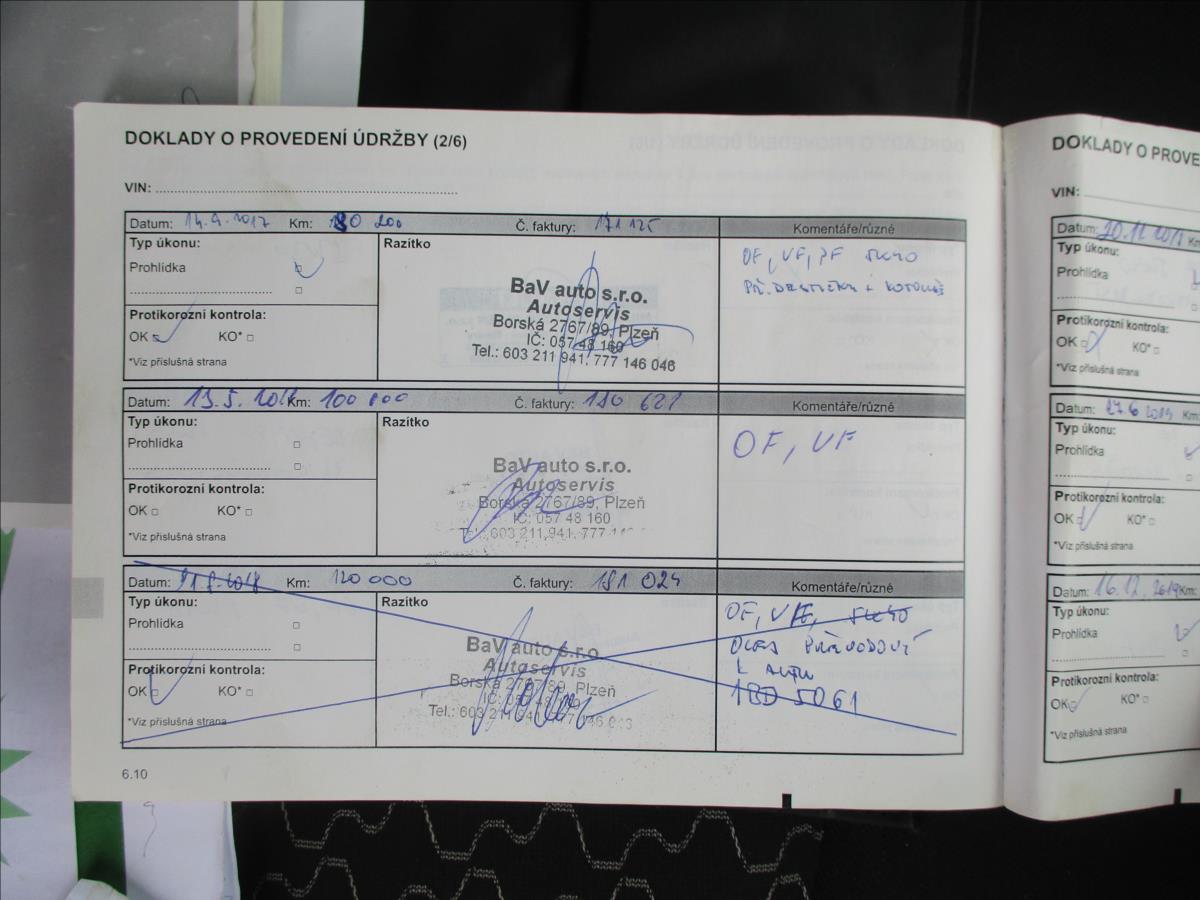 DOKLADY O PROVEDENÍ ÚDRŽBY (2/6)
VIN:
Datum: 14.9.2017 Km: 80 200 Č. faktury: 171 125 Komentáře/různé
Typ úkonu:
Prohlídka
Razítko
OF, VF, PF SKLO
PŘ. DESTIČKY + KOTOUČE
BaV auto s.r.o.
Autoservis
Borská 2767/89, Plzeň
IČ: 057 48 160
Tel.: 603 211 941, 777 146 046
Protikorozní kontrola:
OK KO*
*Viz příslušná strana
Datum: 15.5. 2018 Km: 100 000 Č. faktury: 180 621 Komentáře/různé
Typ úkonu:
Prohlídka
Razítko
OF, VF
BaV auto s.r.o.
Autoservis
Borská 2767/89, Plzeň
IČ: 057 48 160
Tel.: 603 211 941, 777 146
Protikorozní kontrola:
OK KO*
*Viz příslušná strana
Datum: 2018 Km: 120 000 Č. faktury: 181 024 Komentáře/různé
Typ úkonu:
Prohlídka
Razítko
OF, VF, SKLO
OLEJ PŘEVODOVÝ
K AUTU
1BD 5061
BaV auto s.r.o.
Autoservis
Borská 2767/89, Plzeň
Tel.: 603 211 941, 777 146
Protikorozní kontrola:
OK KO*
*Viz příslušná strana
6.10
DOKLADY O PROVE
VIN:
Datum: 20.12 201 Km
Typ úkonu:
Prohlídka
Protikorozní kontrola:
OK KO*
*Viz příslušná strana
Datum: 27 6 2019 Km:
Typ úkonu:
Prohlídka
Protikorozní kontrola:
OK KO*
*Viz příslušná strana
Datum: 16.12. 2019 Km:
Typ úkonu:
Prohlídka
Protikorozní kontrola:
OK KO*
*Viz příslušná strana